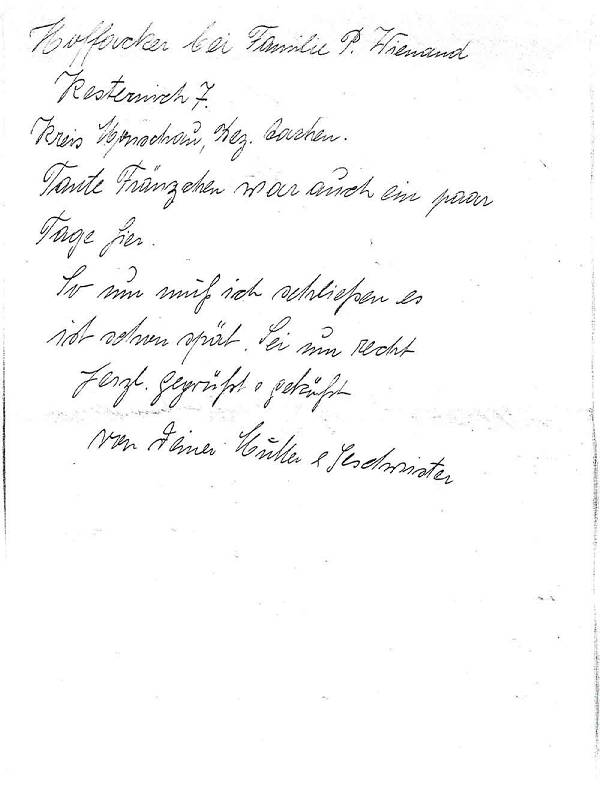 Hoffacker bei Familie P. Wienand
Kesternich 7.
Kreis Monschau, Bez. Aachen.
Tante Fränzchen war auch ein paar
Tage hier.
So nun muß ich schließen es
ist schon spät. Sei nun recht
herzl. gegrüßt & geküßt
von deiner Mutter & Geschwister